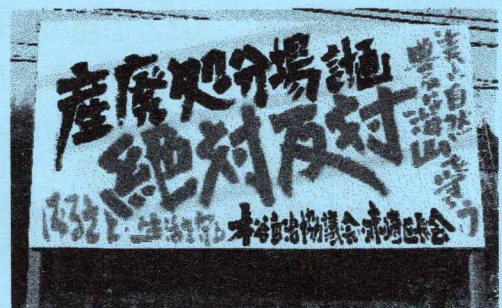 産廃処分場計画
絶対反対
美しい自然
豊かな海山
を守ろう
ふるさと・生活を守る
本谷自治協議会・赤崎区長会